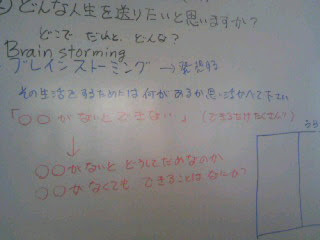 どんな人生を送りたいと思いますか?
どこで だれと、どんな?
Brain storming
ブレインストーミング → 発想する
その生活をするためには何があるか思い浮かべて下さい
「○○がないとできない」 (できるだけたくさん?)
↓
○○がないと どうしてだめなのか
○○がなくても できることはなにか?